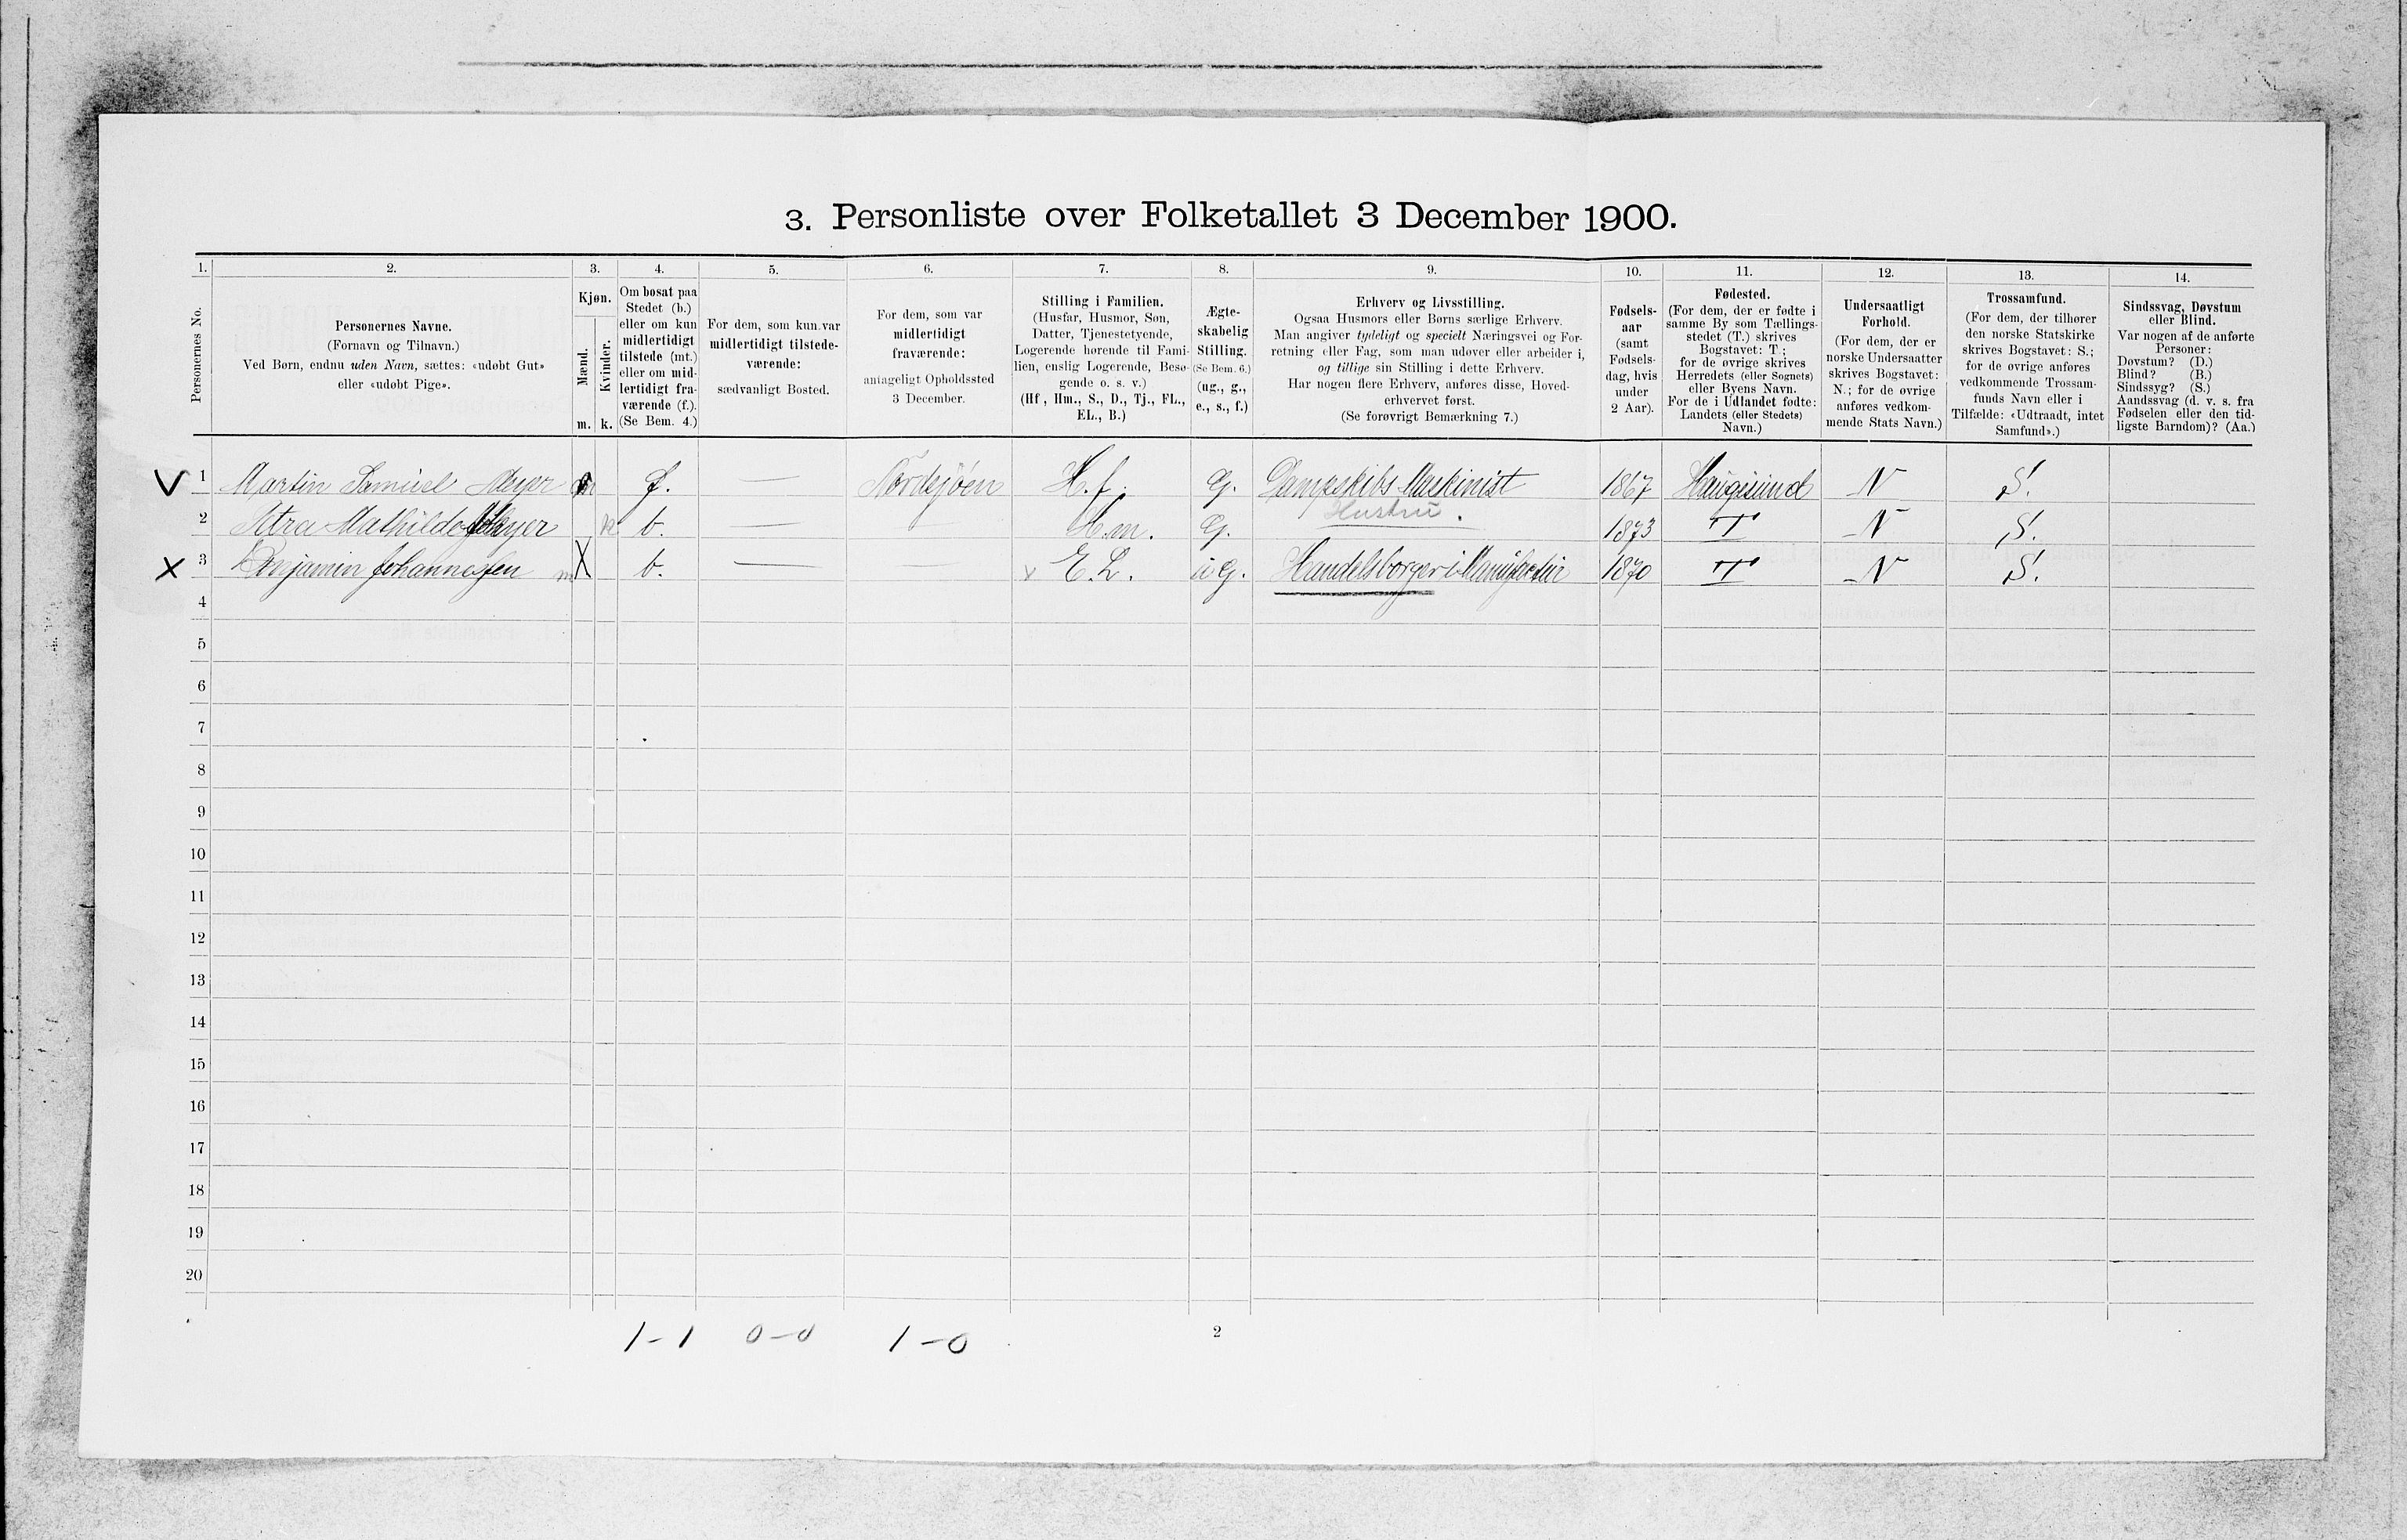 3. Personliste over Folketallet 3 December 1900.
1. 2. 3. 4. 5. 6. 7. 8. 9. 10. 11. 12. 13. 14.
Personernes No.
Personernes Navne.
(Fornavn og Tilnavn.)
Ved Børn, endnu uden Navn, sættes: «udøbt Gut»
eller «udøbt Pige».
Kjøn.
Mænd.
Kvinder.
m. k.
Om bosat paa
Stedet (b.)
eller om kun
midlertidigt
tilstede (mt.)
eller om mid-
lertidigt fra-
værende (f.).
(Se Bem. 4.)
For dem, som kun var
midlertidigt tilstede-
værende:
sædvanligt Bosted.
For dem, som var
midlertidigt
fraværende:
antageligt Opholdssted
3 December.
Stilling i Familien.
(Husfar, Husmor, Søn,
Datter, Tjenestetyende,
Logerende hørende til Fami-
lien, enslig Logerende, Besø-
gende o. s. v.)
(Hf., Hm., S., D., Tj., FL.,
EL., B.)
Ægte-
skabelig
Stilling.
(Se Bem. 6.)
(ug., g.,
e., s., f.)
Erhverv og Livsstilling.
Ogsaa Husmors eller Børns særlige Erhverv.
Man angiver tydeligt og specielt Næringsvei og For-
retning eller Fag, som man udøver eller arbeider i,
og tillige sin Stilling i dette Erhverv.
Har nogen flere Erhverv, anføres disse, Hoved-
erhvervet først.
(Se forøvrigt Bemærkning 7.)
Fødsels-
aar
(samt
Fødsels-
dag, hvis
under
2 Aar).
Fødested.
(For dem, der er fødte i
samme By som Tællings-
stedet (T.) skrives
Bogstavet: T.;
for de øvrige skrives
Herredets (eller Sognets)
eller Byens Navn.
For de i Udlandet fødte:
Landets (eller Stedets)
Navn.)
Undersaatligt
Forhold.
(For dem, der er
norske Undersaatter
skrives Bogstavet:
N.; for de øvrige
anføres vedkom-
mende Stats Navn.)
Trossamfund.
(For dem, der tilhører
den norske Statskirke
skrives Bogstavet: S.;
for de øvrige anføres
vedkommende Trossam-
funds Navn eller i
Tilfælde: «Udtraadt, intet
Samfund».)
Sindssvag, Døvstum
eller Blind.
Var nogen af de anførte
Personer:
Døvstum? (D.)
Blind? (B.)
Sindssyg? (S.)
Aandssvag (d. v. s. fra
Fødselen eller den tid-
ligste Barndom)? (Aa.)
V 1 Martin Samuel m f. — Nordsjöen H.f. G. Dampskibs Maskinist 1867 Haugesund N S.
2 Petra Mathilde k b. — H.m. G. Hustru. 1873 T N S.
X 3 Benjamin Johannessen m X b. — x E.L. u G. Handelsborger i Manufactur 1870 T N S.
4
5
6
7
8
9
10
11
12
13
14
15
16
17
18
19
20
1-1 0-0 1-0 2